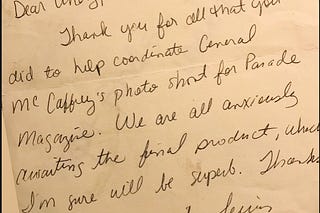 Dear
Thank you for all that you
did to help coordinate General
McCaffrey's photo shoot for Parade
Magazine. We are all anxiously
awaiting the final product, which
I'm sure will be superb. Thanks